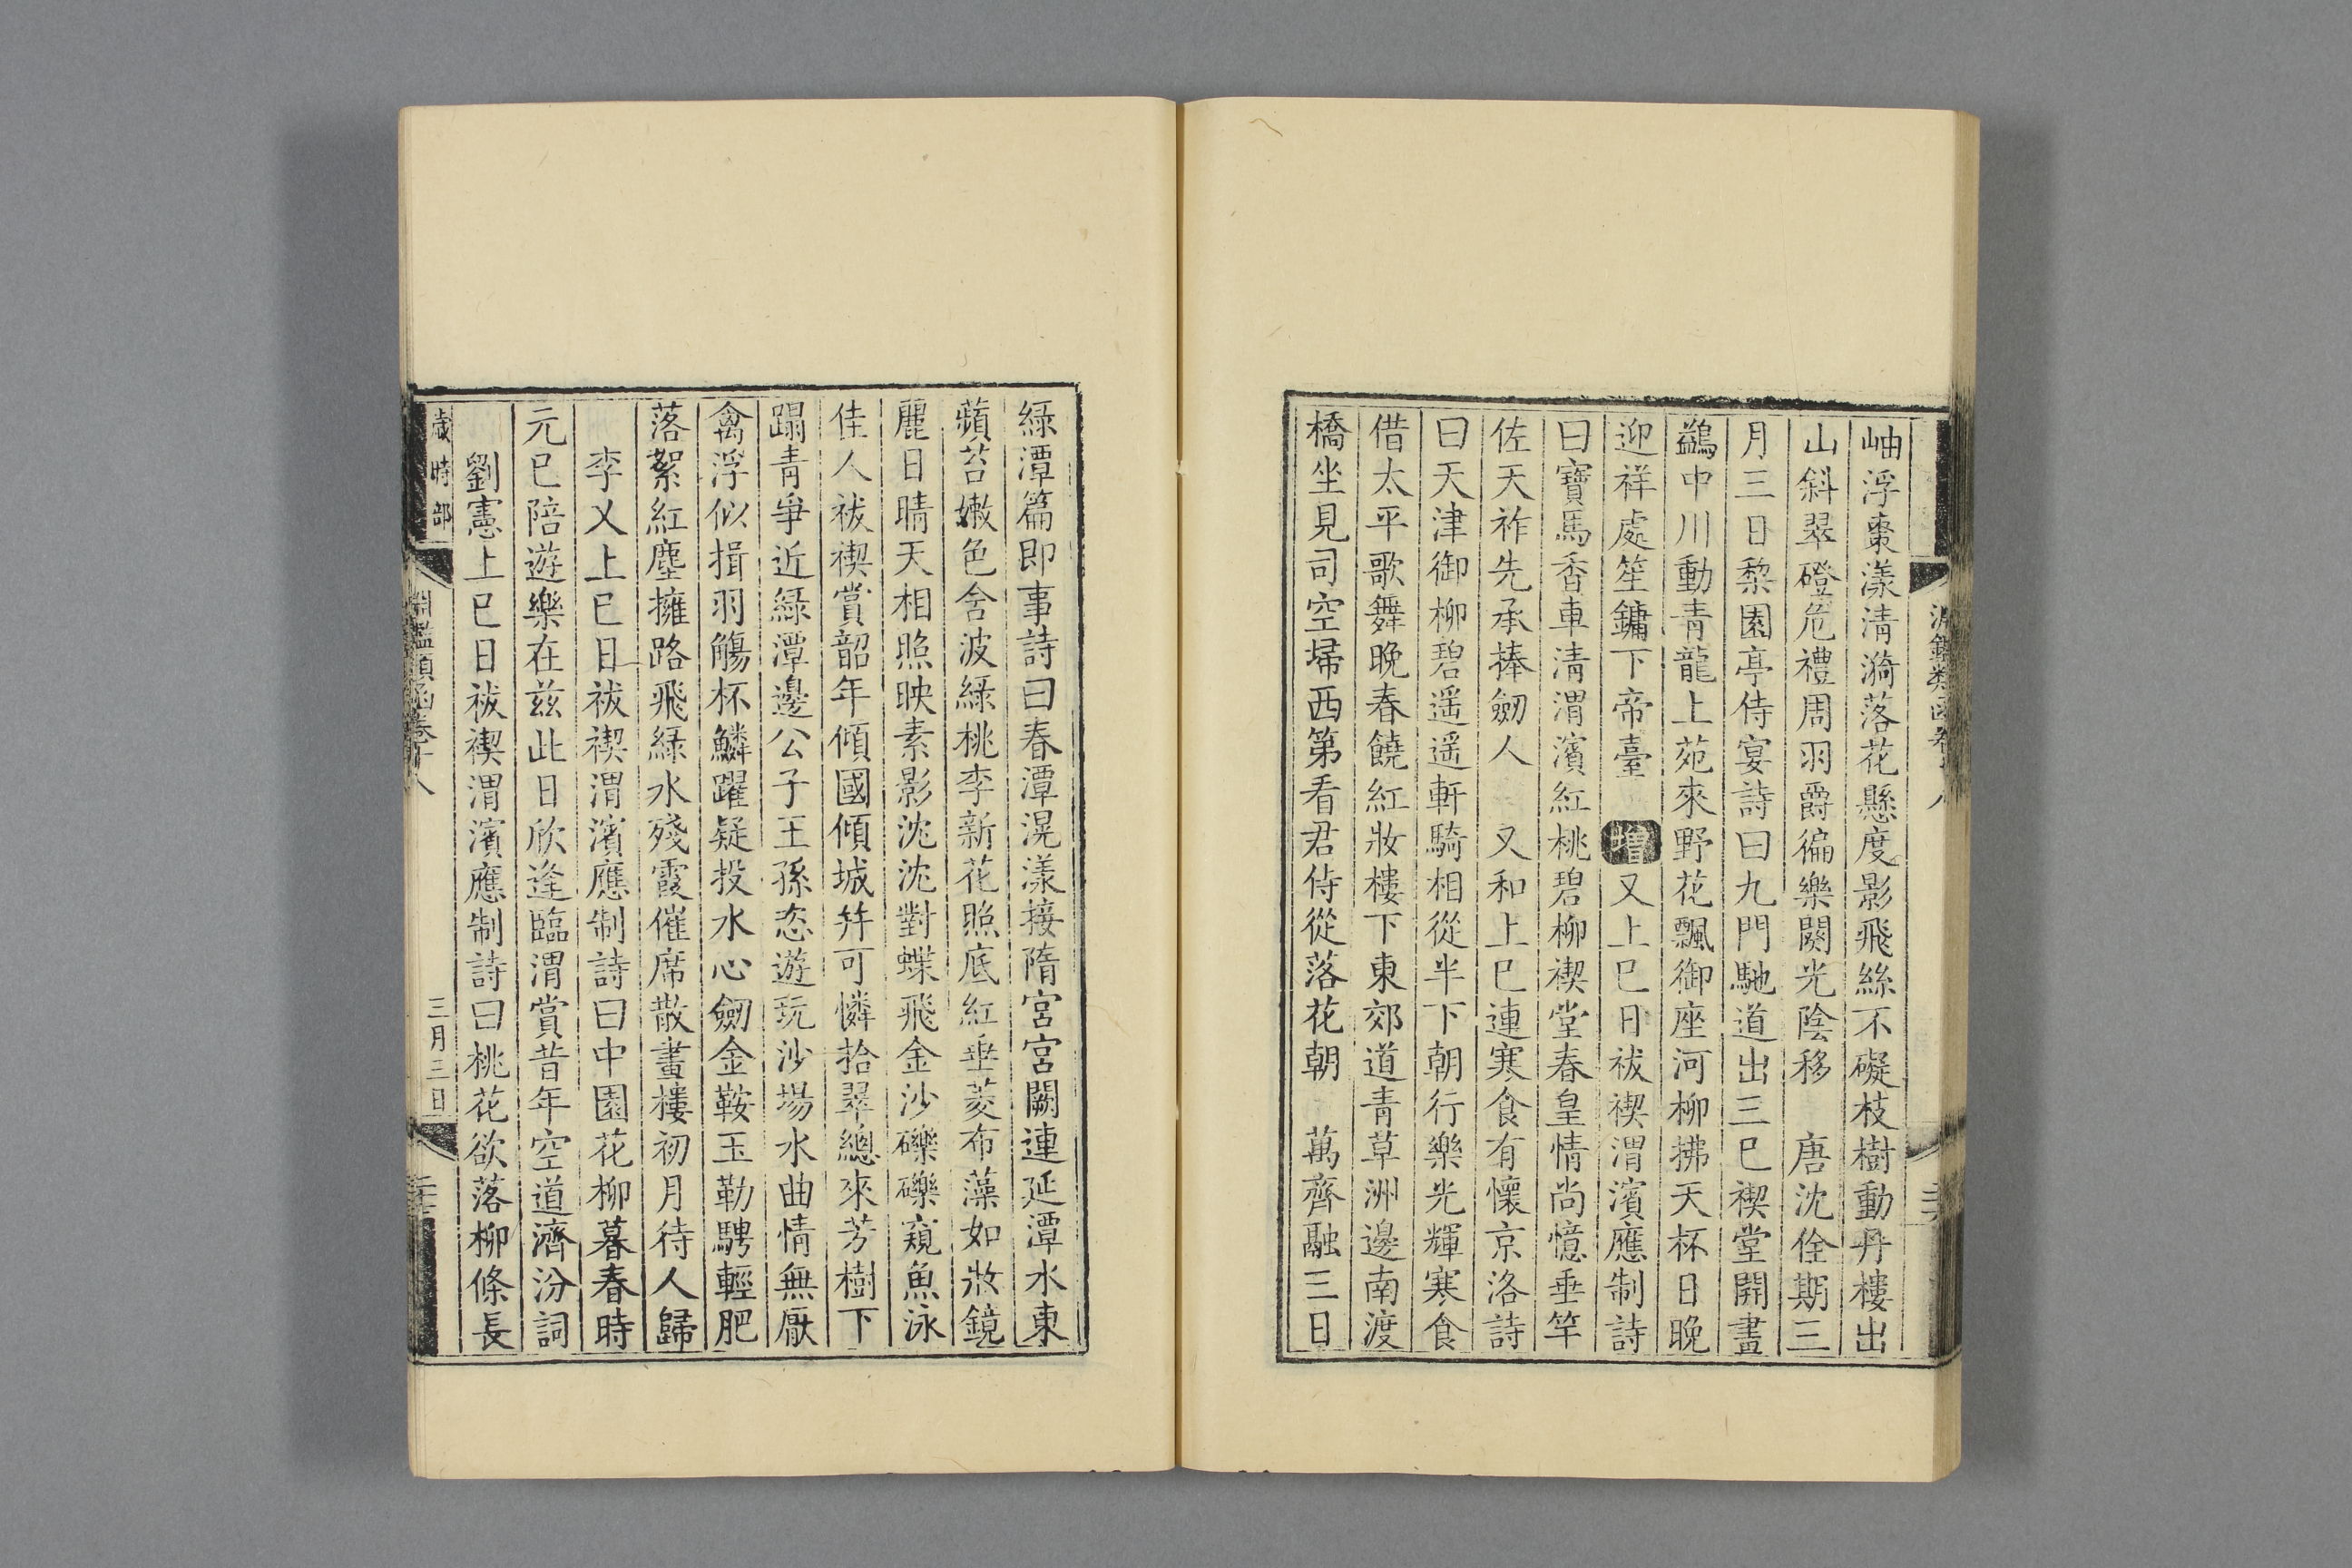 岫浮棗漾清漪落花懸度影飛絲不礙枝樹動丹樓出
山斜翠磴危禮周羽爵徧樂闋光陰移　唐沈佺期三
月三日棃園亭侍宴詩曰九門馳道出三巳禊堂開畫
鷁中川動青龍上苑來野花飄御座河柳拂天杯日晚
迎祥處笙鏞下帝臺　增又上巳日祓禊渭濱應制詩
曰寶馬香車清渭濱紅桃碧柳禊堂春皇情尚憶垂竿
佐天祚先承捧劒人　又和上巳連寒食有懷京洛詩
曰天津御柳碧遥遥軒騎相從半下朝行樂光輝寒食
借太平歌舞晚春饒紅妝樓下東郊道青草洲邊南渡
橋坐見司空埽西第看君侍從落花朝　萬齊融三日
綠潭篇即事詩曰春潭滉漾接隋宮宮闕連延潭水東
蘋苔嫩色含波綠桃李新花照底紅垂菱布藻如妝鏡
麗日晴天相照映素影沈沈對蝶飛金沙礫礫窺魚泳
佳人祓禊賞韶年傾國傾城并可憐拾翠總來芳樹下
蹋青爭近綠潭邊公子王孫恣遊玩沙場水曲情無厭
禽浮似揖羽觴杯鱗躍疑投水心劒金鞍玉勒騁輕肥
落絮紅塵擁路飛綠水殘霞催席散畫樓初月待人歸
李乂上巳日祓禊渭濱應制詩曰中園花柳暮春時
元巳陪遊樂在茲此日欣逢臨渭賞昔年空道濟汾詞
劉憲上巳日祓禊渭濱應制詩曰桃花欲落柳條長
歲時部
淵鑑類函卷十八
三月三日